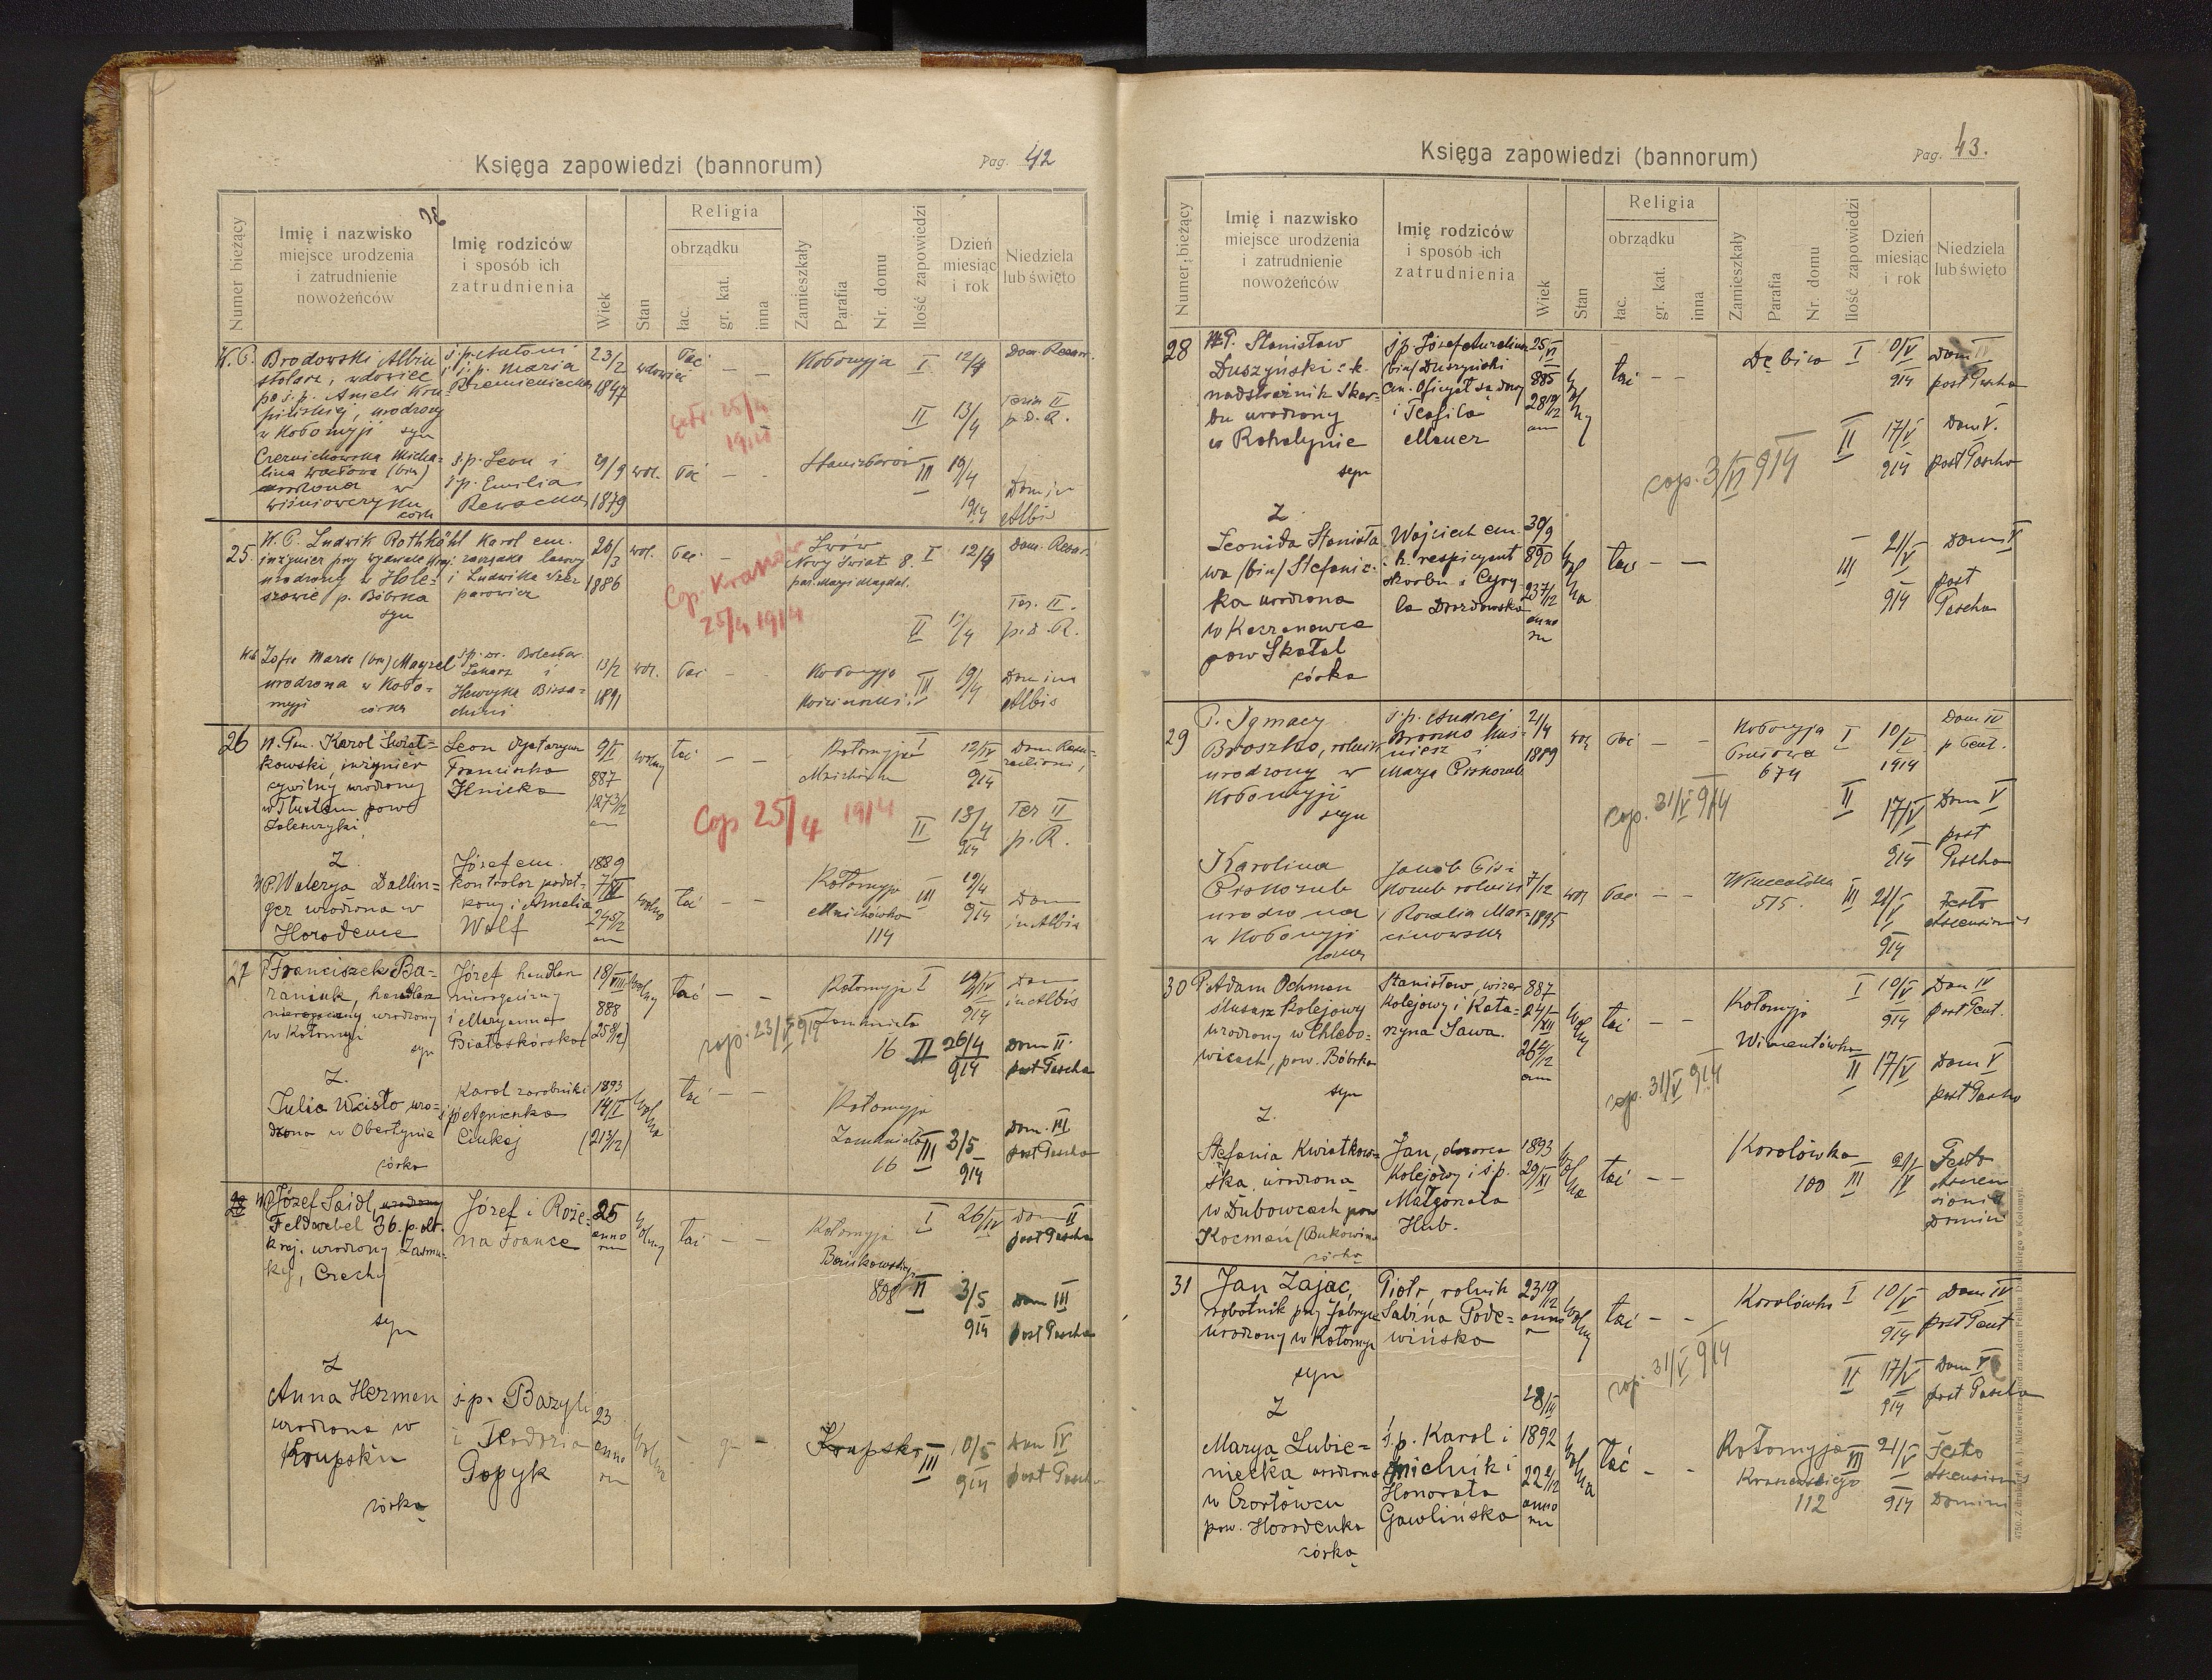 Księga zapowiedzi (bannorum)
Pag. 42
Numer bieżący
Imię i nazwisko
miejsce urodzenia
i zatrudnienie
nowożeńców
Imię rodziców
i sposób ich
zatrudnienia
Wiek
Stan
Religia
obrządku
łac.
gr. kat.
inna
Zamieszkały
Parafia
Nr. domu
Ilość zapowiedzi
Dzień
miesiąc
i rok
Niedziela
lub święto
W. P. Brodowski Albin
stolarz, wdowiec
po ś. p. Amelii
urodzony
w Kołomyji syn
ś. p. Antoni
i ś. p. Maria
23/2
1847
wdowiec
łac. — —
Kołomyja I 12/4
II 13/4
p. D. R.
Czernichowska Micha-
lina Wacława (bin)
urodzona w
Wiśniowczyku
córka
ś. p. Leon i
ś. p. Emilia
29/9
1879
wol. łać — —
Stanisławów III 19/4
914
Dom in
Albis
25 W. P. Ludwik Rothkähl
inżynier przy
urodzony w Hole-
szowie p. Bóbrka
syn
Karol em.
zarządca lasowy
i Ludwika Szez
parowicz
26/3
1886
wol. łac. —
Cop. Kraków
25/4 1914
Lwów
Nowy Świat 8. I 12/4
par. Maryi Magdal.
Dom. Resur.
II
p. D. R.
Zofia Maria (bin) Mayzel
urodzona w Koło-
myji córka
Lekarz i
Henryka
13/2
1891
wol. łac — —
Kołomyja
III 19/4
Dom in
Albis
26 W. Pan. Karol Świąt-
kowski, inżynier
cywilny urodzony
w Tłustem pow.
Zaleszczyki,
Leon
Franciszka
Ilnicka
9/II
887
27 3/12
wolny łać — —
Kołomyja I 12/IV
914
Cop 25/4 1914
II 13/4
914
Ter II
p. R.
Z
WP. Walerya Dallin-
ger urodzona w
Horodence
Józef em.
kontrolor podat-
kowy i Amelia
Wolf
1889
7/XI
24 5/12
wolna łać — —
Kołomyja III 19/4
Mnichówka 914
114
Dom
in Albis
27 P Franciszek Ba-
raniuk, handlarz
nierogacizny urodzony
w Kołomyi
syn
Józef handlarz
nierogacizny
i Maryanna
Białoskórska
18/VIII
888
(25 8/12)
wolny łać — —
Kołomyja I 19/IV
914
Dom
in Albis
cop. 23/V 914
16 II 26/4
914
Dom II
post Pascha
Z.
Julia Wcisło uro-
dzona w Obertynie
córka
Karol zarobnik i
ś. p. Agnieszka
Ciukaj
1893
14/I
(21 3/12)
wolna
łać — —
Kołomyja
16 III 3/5
914
Dom. III
post Pascha
28 WP Józef Seidl, urodzony
Feldwebel 36. p. ob.
kraj. urodzony Zasmu-
ky, Czechy
syn
Józef i Roże-
na France
25
anno
rum
wolny łać — —
Kołomyja I 26/IV
Bońkowskiego
808 II 3/5
914
Dom II
post Pascha
Dom III
post Pascha
Z
Anna Herman
urodzona w
Krupsku
córka
ś. p. Bazyli
i Teodozia
Popyk
23
anno
rum
wolna — g — —
Krupsko III 10/5
914
Dom IV
post Pascha
Księga zapowiedzi (bannorum)
Pag. 43.
Numer bieżący
Imię i nazwisko
miejsce urodzenia
i zatrudnienie
nowożeńców
Imię rodziców
i sposób ich
zatrudnienia
Wiek
Stan
Religia
obrządku
łac.
gr. kat.
inna
Zamieszkały
Parafia
Nr. domu
Ilość zapowiedzi
Dzień
miesiąc
i rok
Niedziela
lub święto
28 W. P. Stanisław
Duszyński c. k.
nadstrażnik Skar-
bu urodzony
w Rohatynie
syn
ś. p. Józef Aurelius
(bin) Duszyński
em. Oficyał sądowy
i Teofila
Mauer
25/VI
885
28 10/12
wolny łać — —
Dębica I 10/V
914
post Pascha
cop. 3/VI 914
II 17/V
914
Dom V.
post Pascha
Z
Leonida Stanisła
wa (bin) Stefanic-
ka urodzona
w Kaczanowce
pow Skałat
córka
Wojciech em.
c. k. respicyent
skarbu i Cyry-
la Drozdowska
30/9
890
23 7/12
anno
ru
wolna łać — —
III 21/V
914
Dom V
post
Pascha
29 P. Ignacy
Broszko, rolnik
urodzony w
Kołomyji
syn
ś. p. Andrzej
Broszko kuś-
nierz i
Marya Piskozub
21/4
1889
wol łać — —
Kołomyja I 10/V
1914
674
Dom IV
p Pent.
cop. 31/V 914
II 17/V
914
Dom V
post
Pascha
Karolina
Piskozub
urodzona
w Kołomyji
córka
Jakób Pis-
kozub rolnik
i Rozalia Mar-
cinowska
7/12
1895
wol łać — —
515. III 21/V
914
Festo
Ascensionis
30 P. Adam Ochman
ślusarz Kolejowy
urodzony w Chlebo-
wicach, pow. Bóbrka
syn
Stanisław, wizer
Kolejowy i Kata-
rzyna Sawa.
887
24/XII
26 4/12
wolny łać — —
Kołomyja I 10/V
914
Wincentówka
Dom IV
post Pent.
cop. 31/V 914
II 17/V
Dom V
post Pascha
Z.
Stefania Kwiatkow-
ska, urodzona
w Dubowcach pow
Kocmań (Bukowina
córka
Jan, dozorca
Kolejowy i ś. p.
Małgorzata
Hub.
1893
29/XI
wolna łać — —
Korolówka
100 III 21/V
Festo
Ascen
sionis
Domini
31 Jan Zając,
robotnik przy fabryce
urodzony w Kołomyi
syn
Piotr, rolnik
Sabina Pode-
wińska
23 10/12
anno
wolny łać — —
Korolówka I 10/V
914
Dom IV
post Pent
cop. 31/V 914
II 17/V
914
Dom V
post Pascha
Z
Marya Lubie-
niecka urodzona
w Czortowcu
pow. Horodenka
córka
ś. p. Karol i
Honorata
Gawlińska
28/III
1892
22 2/12
anno
ru
wolna łać — —
Kołomyja III 21/V
Kraszewskiego 914
112
Festo
Ascensionis
Domini